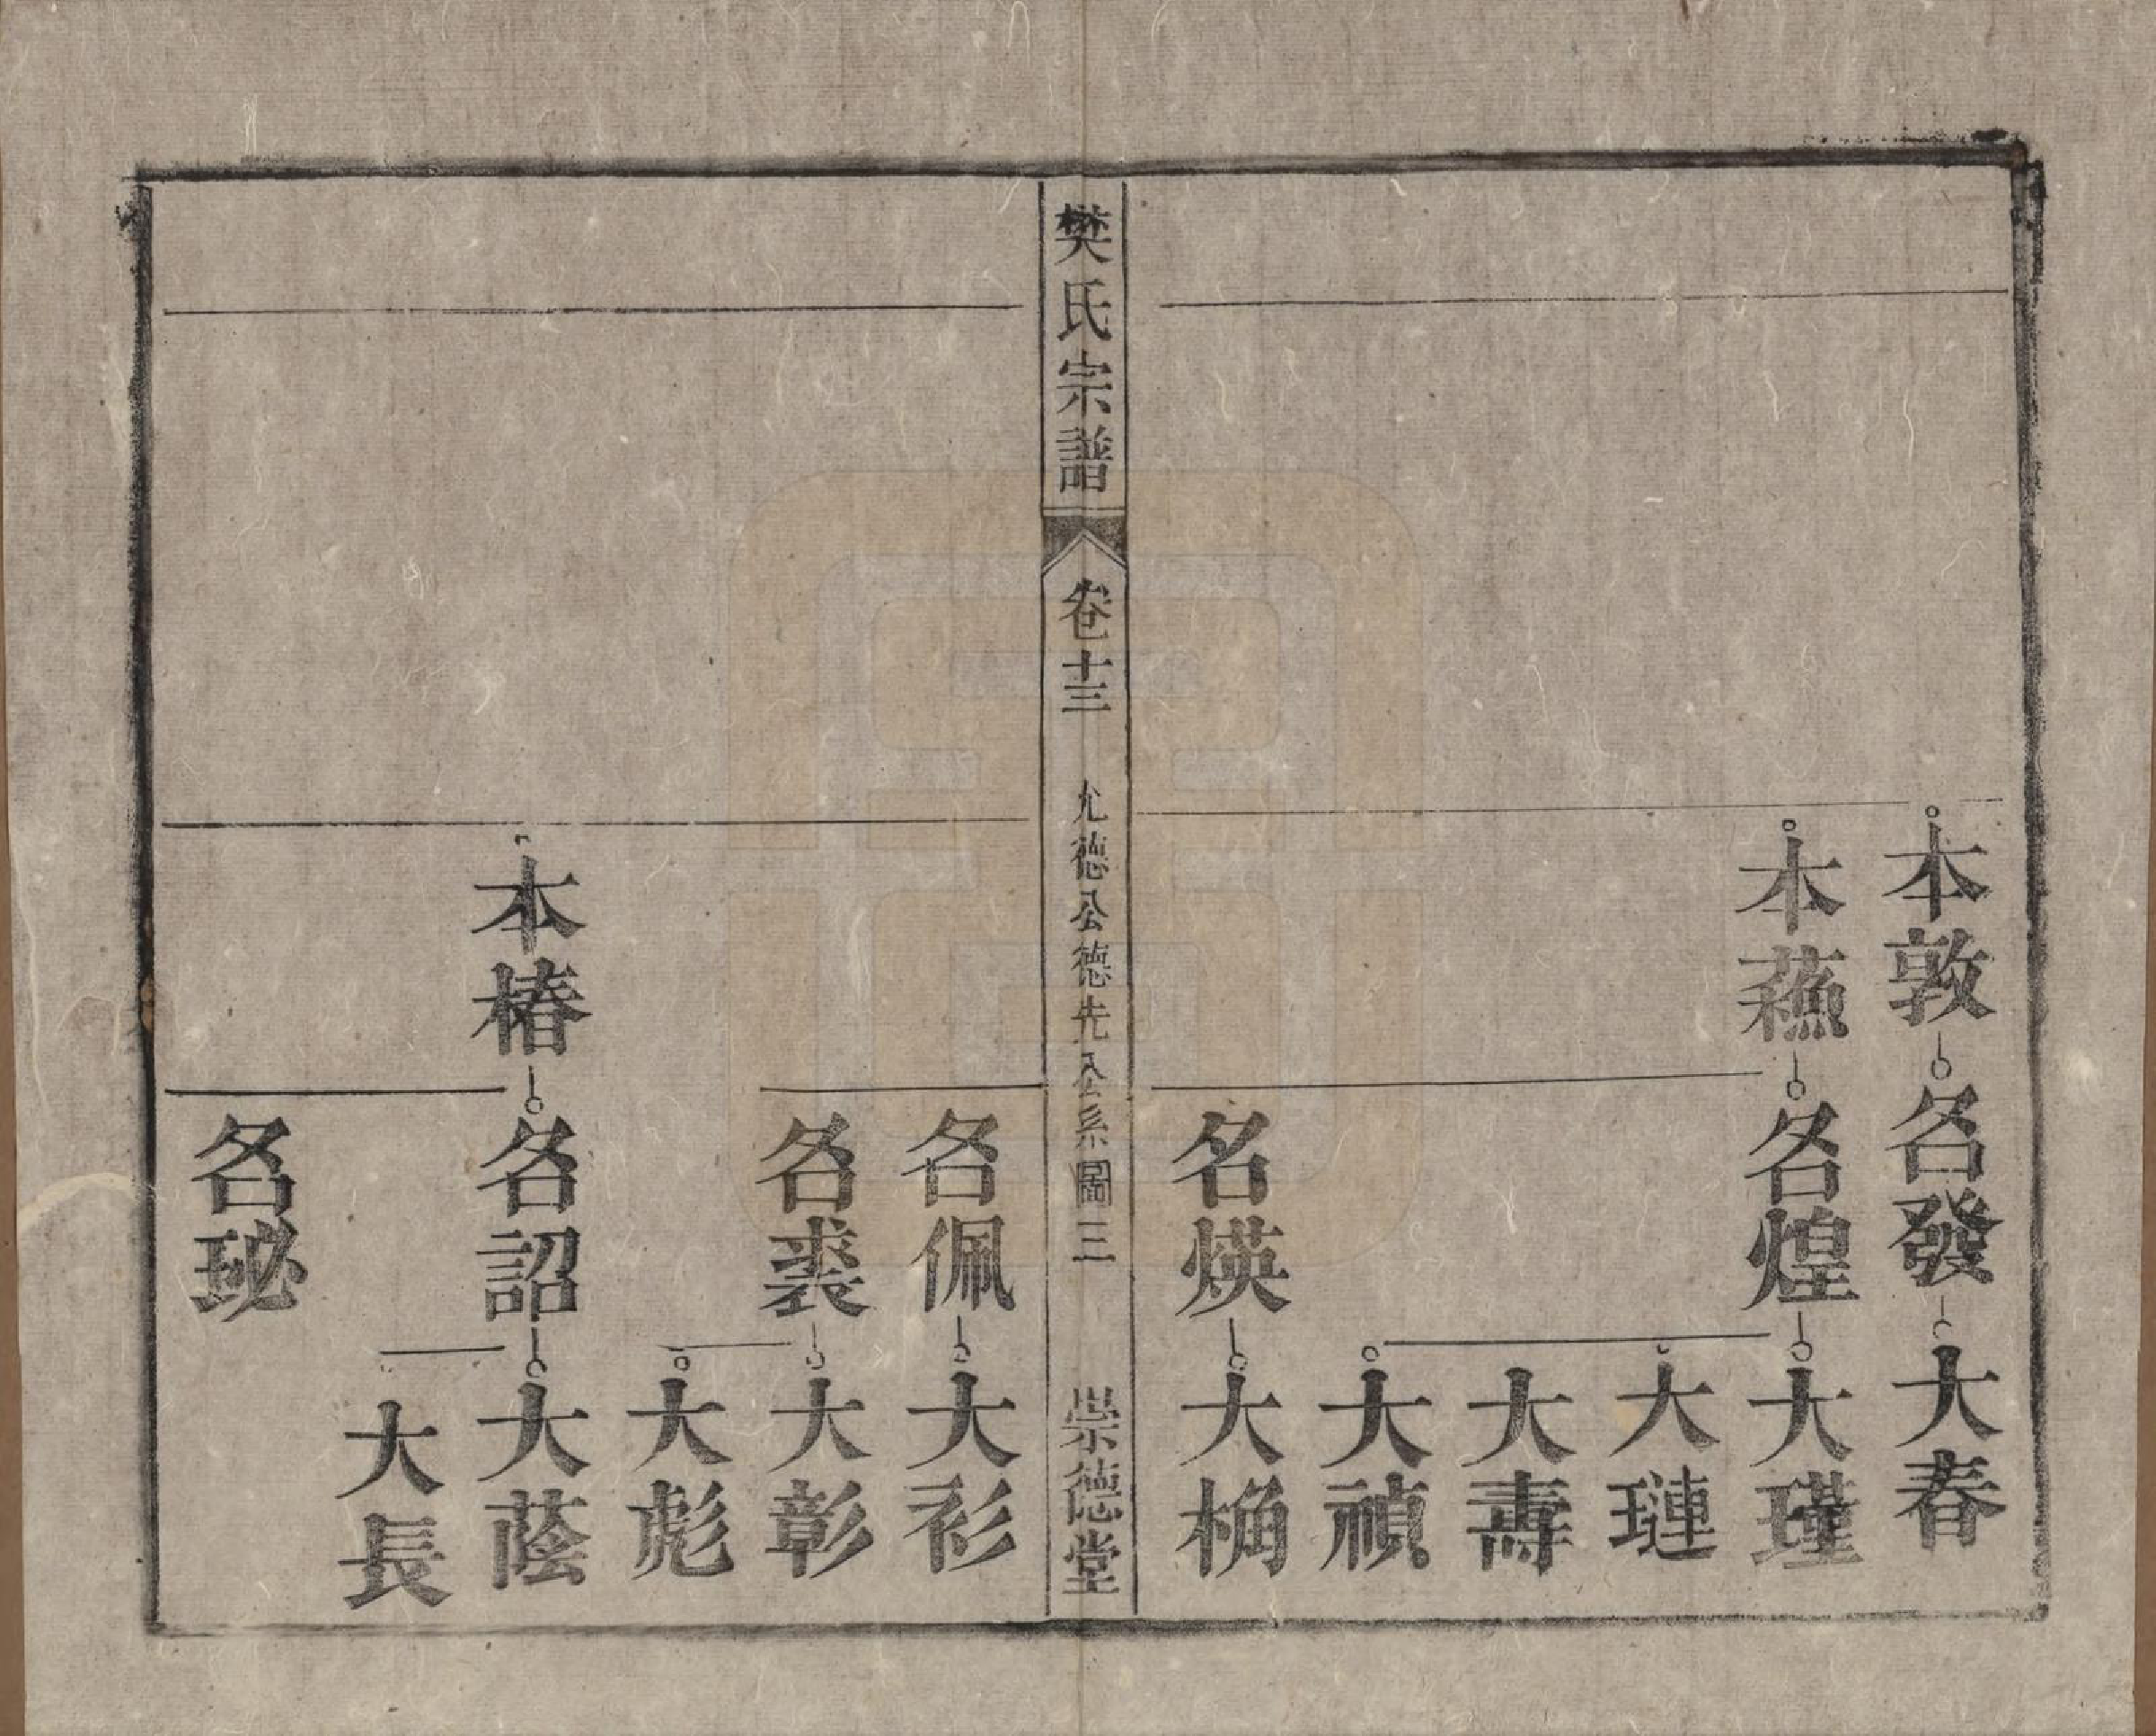 本敦
名發
大春
本蕪
名煌
大瑾
大璉
大壽
大禎
名煐
大桷
樊氏宗譜
卷十三
允德公德先公系圖三
崇德堂
名佩
大衫
名裘
大彰
大彪
本椿
名詔
大蔭
大長
名珌